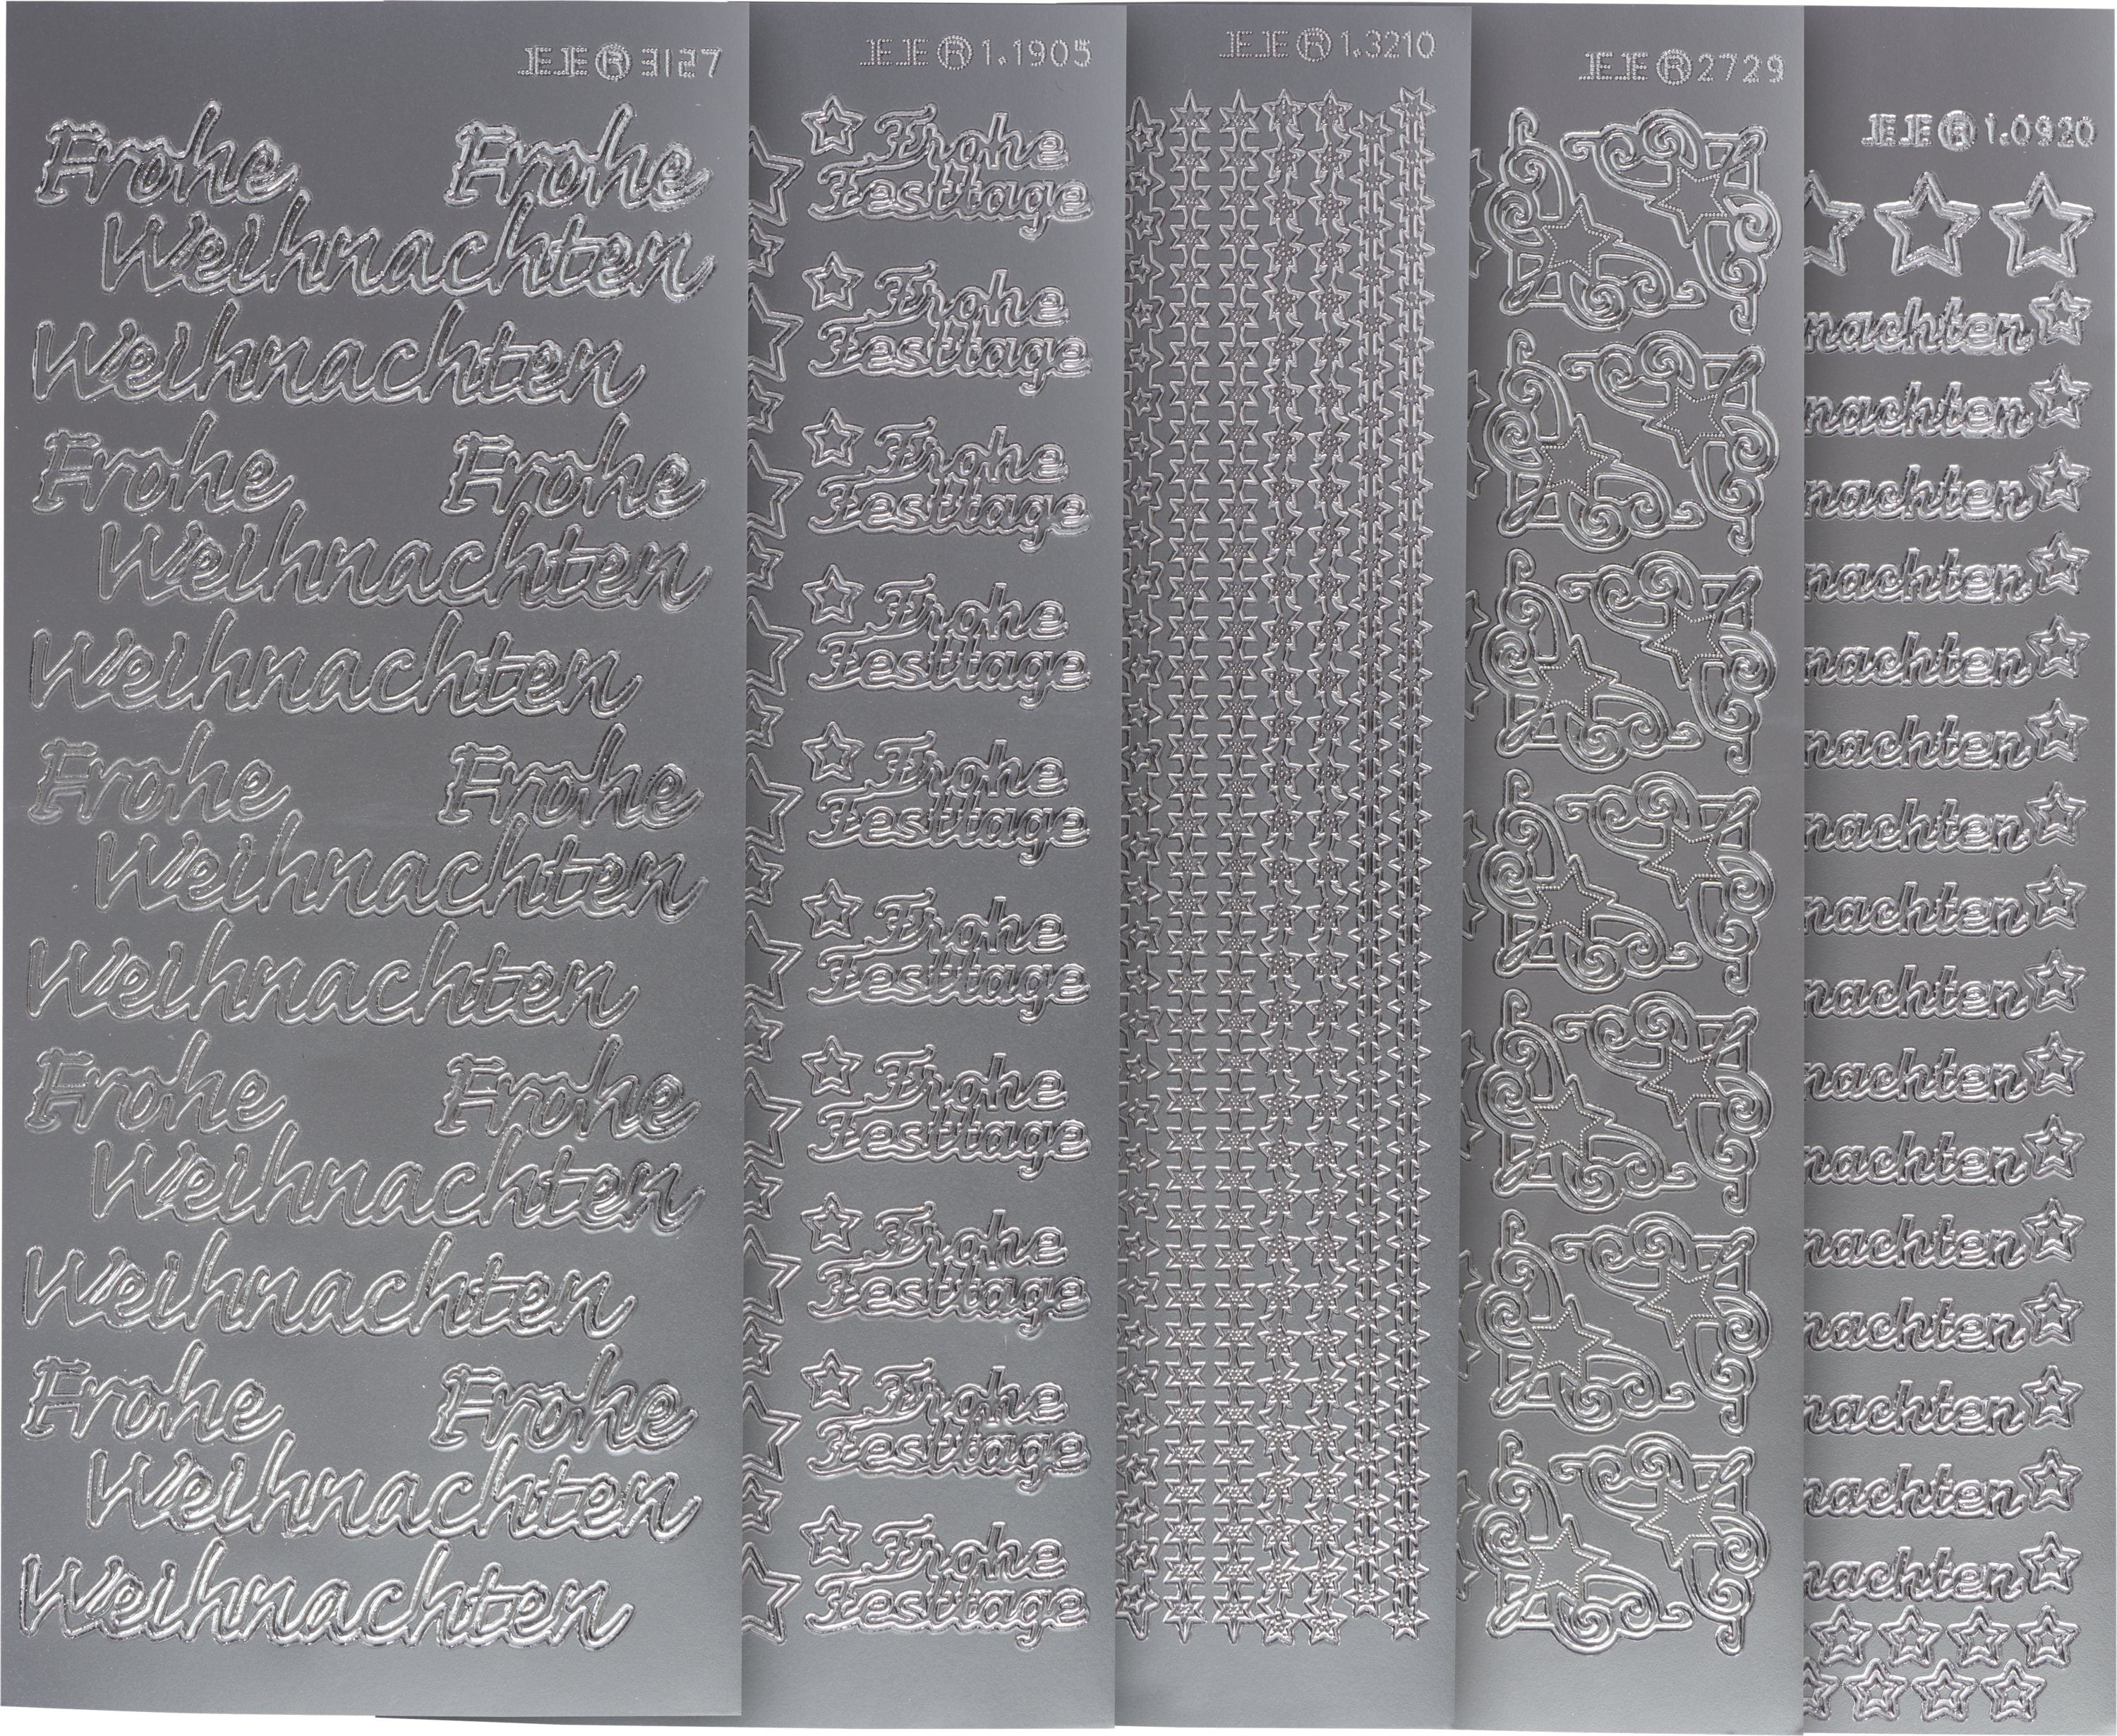 JEJE ® 3127
Frohe Frohe
Weihnachten
Weihnachten
Frohe Frohe
Weihnachten
Weihnachten
Frohe Frohe
Weihnachten
Weihnachten
Frohe Frohe
Weihnachten
Weihnachten
Frohe Frohe
Weihnachten
Weihnachten
JEJE ® 1.1905
Frohe
Festtage
Frohe
Festtage
Frohe
Festtage
Frohe
Festtage
Frohe
Festtage
Frohe
Festtage
Frohe
Festtage
Frohe
Festtage
Frohe
Festtage
Frohe
Festtage
JEJE ® 1.3210
JEJE ® 2729
JEJE ® 1.0920
nachten
nachten
nachten
nachten
nachten
nachten
nachten
nachten
nachten
nachten
nachten
nachten
nachten
nachten
nachten
nachten